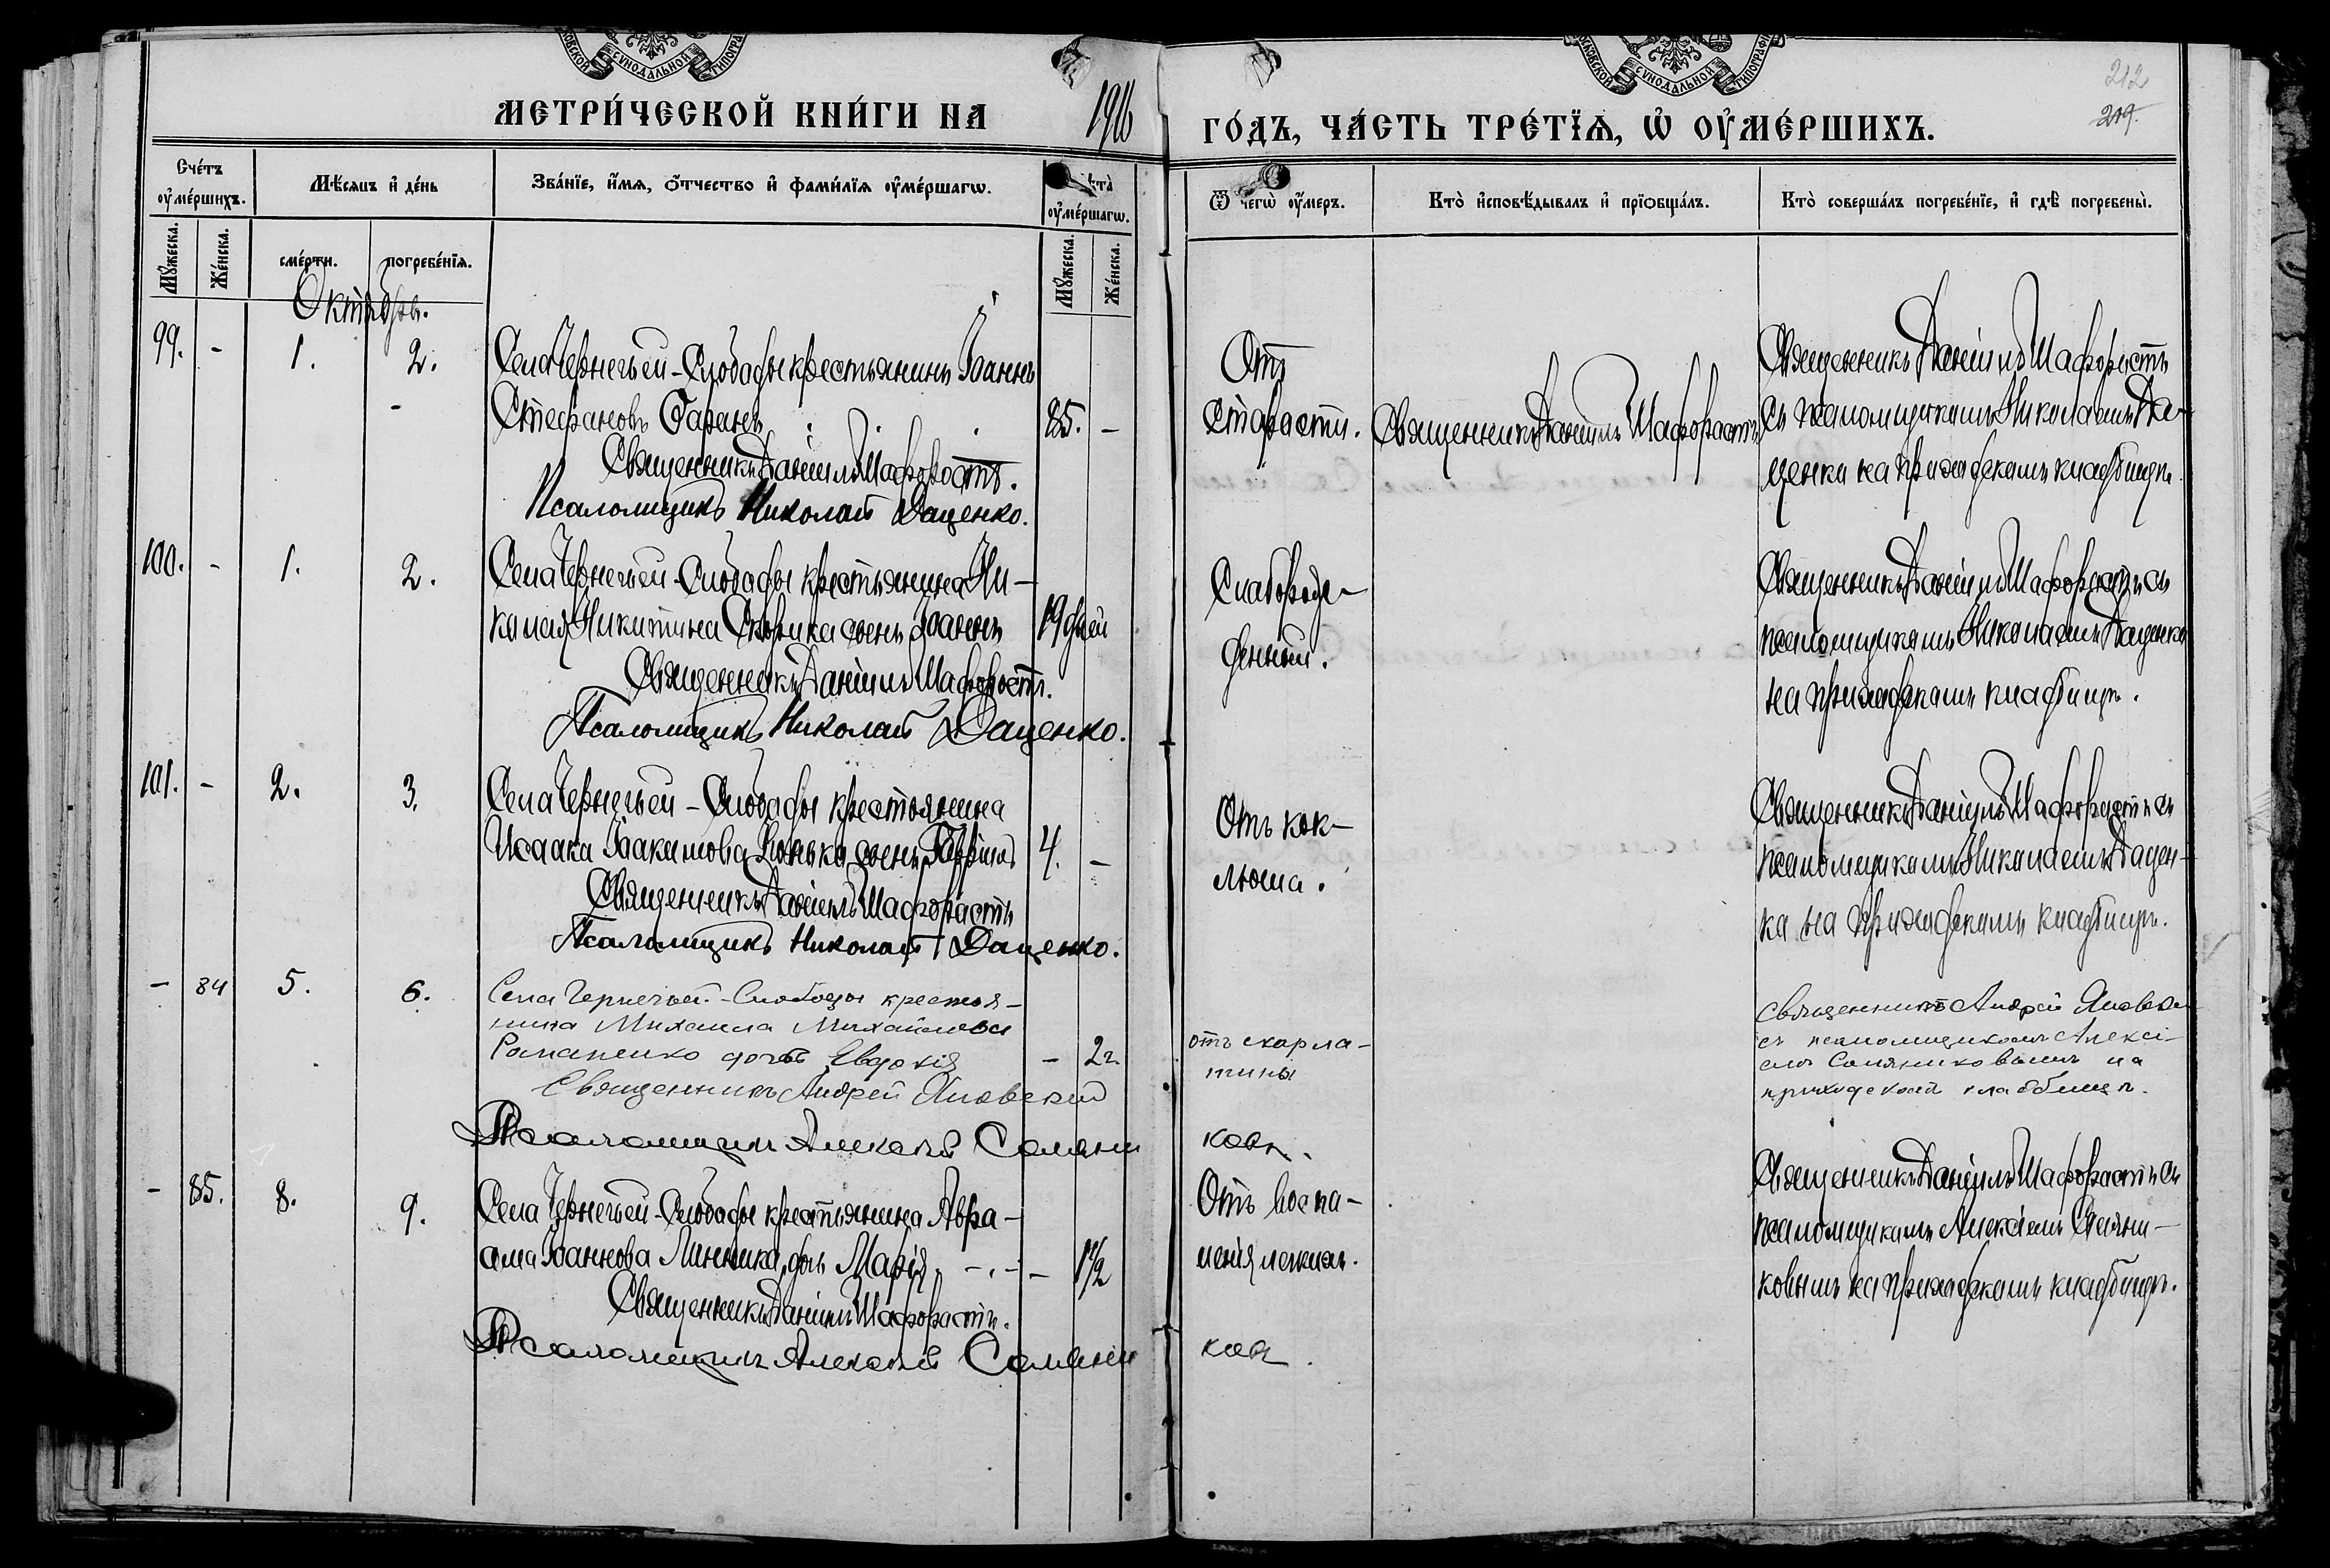 МОСКОВСКОЙ СѴНОДАЛЬНОЙ ТИПОГРАФІИ
МОСКОВСКОЙ СѴНОДАЛЬНОЙ ТИПОГРАФІИ
212
219.
МЕТРИ́ЧЕСКОЙ КНИ́ГИ НА 1916 ГО́ДЪ, ЧА́СТЬ ТРЕ́ТЇѦ, Ѡ҆ ОУ҆МЕ́РШИХЪ.
Сче́тъ оу҆ме́ршихъ.
Мѣ́сяцъ и҆ де́нь
Зва́нїе, и҆́мя, ѻ҆́тчество и҆ фами́лїя оу҆ме́ршагѡ.
Лѣ́та оу҆ме́ршагѡ.
Ѿ чегѡ̀ оу҆́меръ.
Кто̀ и҆сповѣ́дывалъ и҆ прїѻбща́лъ.
Кто̀ соверша́лъ погребе́нїе, и҆ гдѣ̀ погребены̀.
Мꙋ́жеска.
Же́нска.
сме́рти.
погребе́нїя.
Мꙋ́жеска.
Же́нска.
Октябрь.
99. - 1. 2. Села Чернечьей-Слободы крестьянинъ Іоаннъ
Стефановъ Баранъ 85. -
Священникъ Даніилъ Шафоростъ.
Псаломщикъ Николай Даценко.
Отъ
старости.
Священникъ Даніилъ Шафоростъ
Священникъ Даніилъ Шафоростъ
съ псаломщикомъ Николаемъ Да-
ценко на приходскомъ кладбищѣ.
100. - 1. 2. Села Чернечьей-Слободы крестьянина Ни-
колая Никитина сынъ Іоаннъ 19 дней
Священникъ Даніилъ Шафоростъ.
Псаломщикъ Николай Даценко.
Слаборож-
денный.
Священникъ Даніилъ Шафоростъ съ
псаломщикомъ Николаемъ Даценко
на приходскомъ кладбищѣ.
101. - 2. 3. Села Чернечьей-Слободы крестьянина
Исаака Іоакимова сынъ 4. -
Священникъ Даніилъ Шафоростъ
Псаломщикъ Николай Даценко.
Отъ кок-
люша.
Священникъ Даніилъ Шафоростъ съ
псаломщикомъ Николаемъ Дацен-
ко на приходскомъ кладбищѣ.
- 84 5. 6. Села Чернечьей-Слободы крестья-
нина Михаила Михайлова
Романенко дочь Евдокія - 2 г.
Священникъ Андрей Яновскій
Псаломщикъ Алексій Соляни
ковъ.
отъ скарла-
тины
Священникъ Андрей Яновскій
съ псаломщикомъ Алексі-
емъ Солянковымъ на
приходскомъ кладбищѣ.
- 85. 8. 9. Села Чернечьей-Слободы крестьянина Авра-
ама Іоаннова Линника, дочь Марія - 1½
Священникъ Даніилъ Шафоростъ.
Псаломщикъ Алексій Соляни
ковъ.
Отъ воспа-
ленія легкихъ.
Священникъ Даніилъ Шафоростъ съ
псаломщикомъ Алексіемъ Соляни-
ковымъ на приходскомъ кладбищѣ.